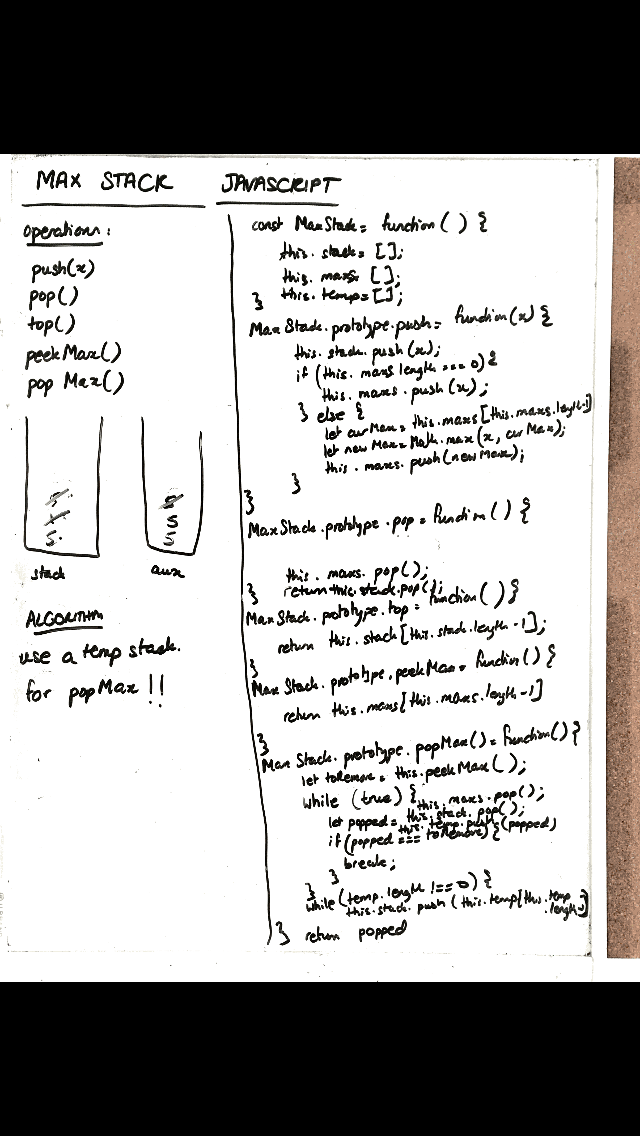 MAX STACK
operations:
push(x)
pop()
top()
peekMax()
pop Max()
5
5
5
5
stack
aux
ALGORITHM
use a temp stack.
for popMax !!
JAVASCRIPT
const MaxStack = function() {
this.stack = [];
this.maxs = [];
this.temp = [];
}
MaxStack.prototype.push = function(x) {
this.stack.push(x);
if (this.maxs length === 0) {
this.maxs.push(x);
} else {
let curMax = this.maxs[this.maxs.length-1]
let newMax = Math.max(x, curMax);
this.maxs.push(newMax);
}
}
MaxStack.prototype.pop = function() {
this.maxs.pop();
return this.stack.pop();
}
MaxStack.prototype.top = function() {
return this.stack[this.stack.length-1];
}
MaxStack.prototype.peekMax = function() {
return this.maxs[this.maxs.length-1]
}
MaxStack.prototype.popMax() = function() {
let toRemove = this.peekMax();
while (true) {
this.maxs.pop();
let popped = this.stack.pop();
if (popped === toRemove) {
this.temp.push(popped)
break;
}
}
while (temp.length !== 0) {
this.stack.push(this.temp[this.temp.length-1]
return popped
}